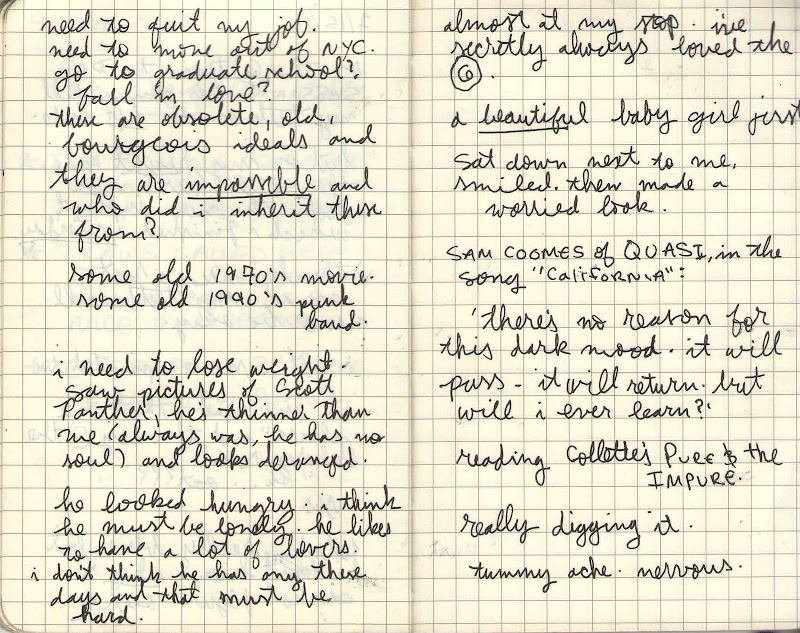 need to quit my job.
need to move out of NYC.
go to graduate school?
fall in love?
these are obsolete, old,
bourgeois ideals and
they are impossible and
who did i inherit these
from?
some old 1970's movie.
some old 1990's punk
band.
i need to lose weight.
saw pictures of Scott
Panther, he's thinner than
me (always was, he has no
soul) and looks deranged.
he looked hungry. i think
he must be lonely. he likes
to have a lot of lovers.
i don't think he has any these
days and that must be
hard.
almost at my stop. i've
secretly always loved the
G.
a beautiful baby girl just
sat down next to me,
smiled. then made a
worried look.
SAM COOMES of QUASI, in the
song "California":
'there's no reason for
this dark mood. it will
pass - it will return. but
will i ever learn?'
reading Collette's Pure & the
IMPURE.
really digging it.
tummy ache. nervous.